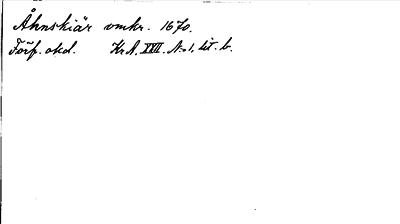 Åhnskiär omkr. 1670.
Förf. okd. KrA. XVII. No 1. lit. b.